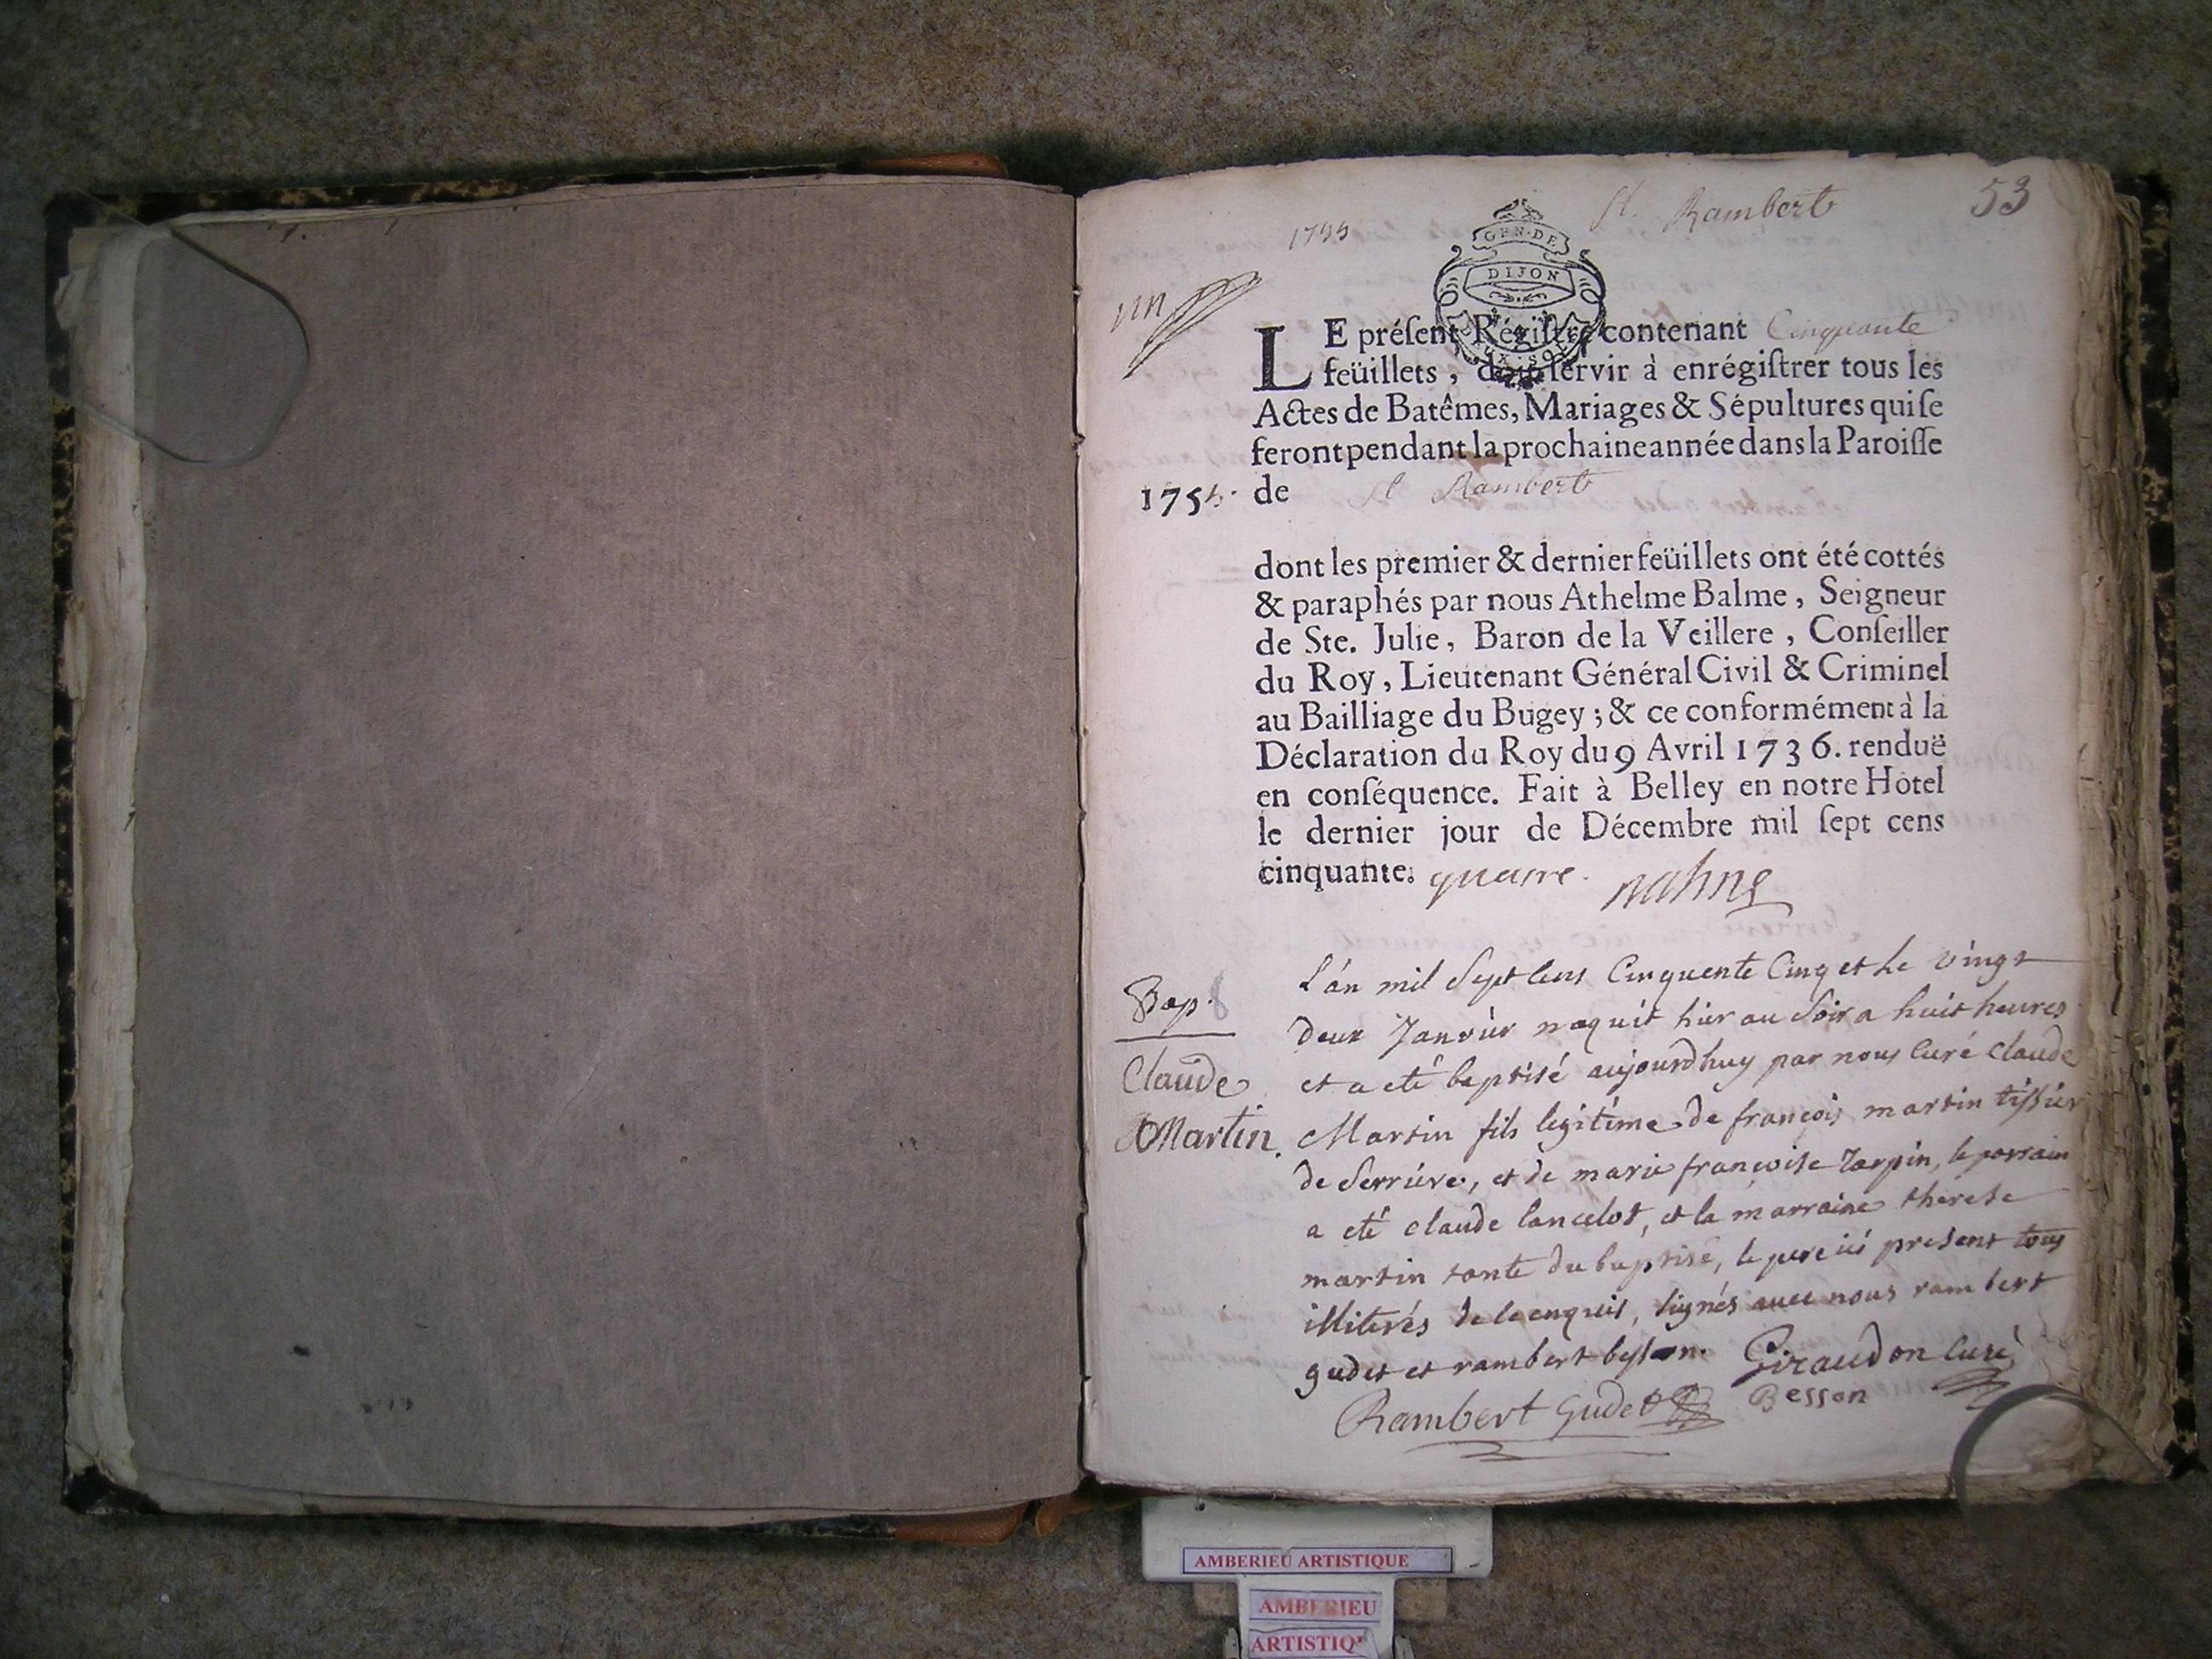 1755
St. Rambert
53
GEN·DE
DIJON
un
LE préſent Régiſtre contenant Cinquante
feüillets, doit ſervir à enrégiſtrer tous les
Actes de Batêmes, Mariages & Sépultures qui ſe
feront pendant la prochaine année dans la Paroiſſe
1755. de St Rambert
dont les premier & dernier feüillets ont été cottés
& paraphés par nous Athelme Balme, Seigneur
de Ste. Julie, Baron de la Veillere, Conſeiller
du Roy, Lieutenant Général Civil & Criminel
au Bailliage du Bugey; & ce conformément à la
Déclaration du Roy du 9 Avril 1736. renduë
en conſéquence. Fait à Belley en notre Hôtel
le dernier jour de Décembre mil ſept cens
cinquante. quatre.
Bap. 8
Claude
Martin.
L'án mil Sept Cens Cinquente Cinq et Le vingt
deux Janvier naquit hier au Soir a huit heures
et a eté baptisé aujourdhuy par nous Curé Claude
Martin fils legitime de françois martin tissier
de Serriere, et de marie françoise Tarpin, le parrain
a eté claude lancelot, et la marraine thérese
martin tante du baptisé, le pere ici present tous
illiterés de ce enquis, signés avec nous rambert
gudet et rambert besson. Giraudon Curé
Rambert Gudet Besson
AMBERIEU ARTISTIQUE
AMBERIEU
ARTISTIQ